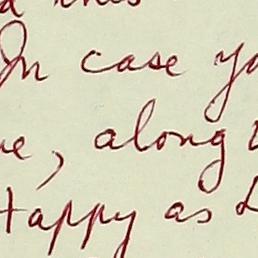 In case yo
e, along
Happy as